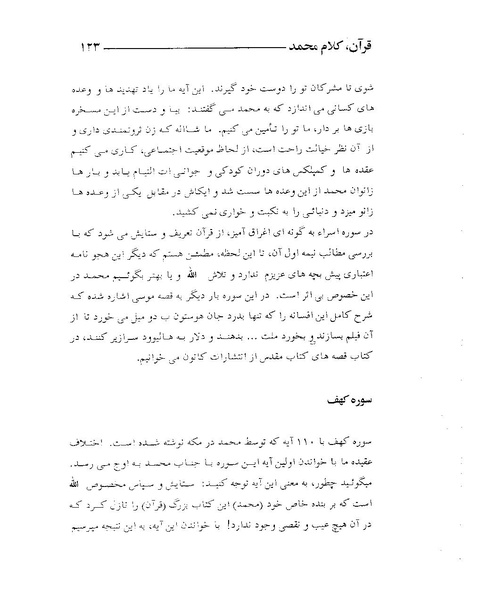 قرآن، کلام محمد ــــــــــــــــــــ ۱۲۳
شوی تا مشرکان تو را دوست خود گیرند. این آیه ما را یاد تهدید ها و وعده
های کسانی می اندازد که به محمد می گفتند: بیا و دست از این مسخره
بازی ها بر دار، ما تو را تأمین می کنیم. ما شااله که زن ثروتمندی داری و
از آن نظر خیالت راحت است، از لحاظ موقعیت اجتماعی، کاری می کنیم
عقده ها و کمپلکس های دوران کودکی و جوانی ات التیام یابد و بار ها
زانوان محمد از این وعده ها سست شد و ایکاش در مقابل یکی از وعده ها
زانو میزد و دنیائی را به نکبت و خواری نمی کشید.
در سوره اسراء به گونه ای اغراق آمیز، از قرآن تعریف و ستایش می شود که با
بررسی مطالب نیمه اول آن، تا این لحظه، مطمئن هستم که دیگر این هجو نامه
اعتباری پیش بچه های عزیزم ندارد و تلاش الله و یا بهتر بگوئیم محمد در
این خصوص بی اثر است. در این سوره بار دیگر به قصه موسی اشاره شده که
شرح کامل این افسانه را که تنها بدرد جان هوستون ب دو میل می خورد تا از
آن فیلم بسازند و بخورد ملت ... بدهند و دلار به هالیوود سرازیر کنند، در
کتاب قصه های کتاب مقدس از انتشارات کانون می خوانیم.
سوره کهف
سوره کهف با ۱۱۰ آیه که توسط محمد در مکه نوشته شده است. اختلاف
عقیده ما با خواندن اولین آیه این سوره با جناب محمد به اوج می رسد.
میگوئید چطور، به معنی این آیه توجه کنید: ستایش و سپاس مخصوص الله
است که بر بنده خاص خود (محمد) این کتاب بزرگ (قرآن) را نازل کرد که
در آن هیچ عیب و نقصی وجود ندارد! با خواندن این آیه، به این نتیجه میرسیم